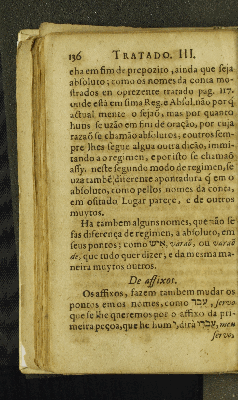 136 TRATADO. III.
eha em fim de prepozito, ainda que seja
absoluto; como os nomes da conta mo-
strados en oprezente tratado pag. 117.
onde está em sima Reg. e Absol. não por q̃
actual mente o sejaõ, mas por quanto
huns se uzão em fim de oração, por cuja
razaõ se chamão absolutos, e outros sem-
pre lhes segue algua outra dicão, immi-
tando a o regimen, e por isto se chamaõ
assy. neste segundo modo de regimen, se
uza tambẽ diferente apontadura q̃ em o
absoluto, como pellos nomes da conta,
em o sitado Lugar pareçe, e de outros
muytos.
Ha tambem alguns nomes, que não se
fas diferença de regimen, a absoluto, em
seus pontos; como איש, varaõ, ou varaõ
de, que tudo quer dizer; e da mesma ma-
neira muytos outros.
De affixos.
Os affixos, fazem tambem mudar os
pontos em os nomes, como עבד, servo
que se lhe queremos por o affixo da pri-
meira peçoa, que he hum י, dirá עבדי, meu
servo,